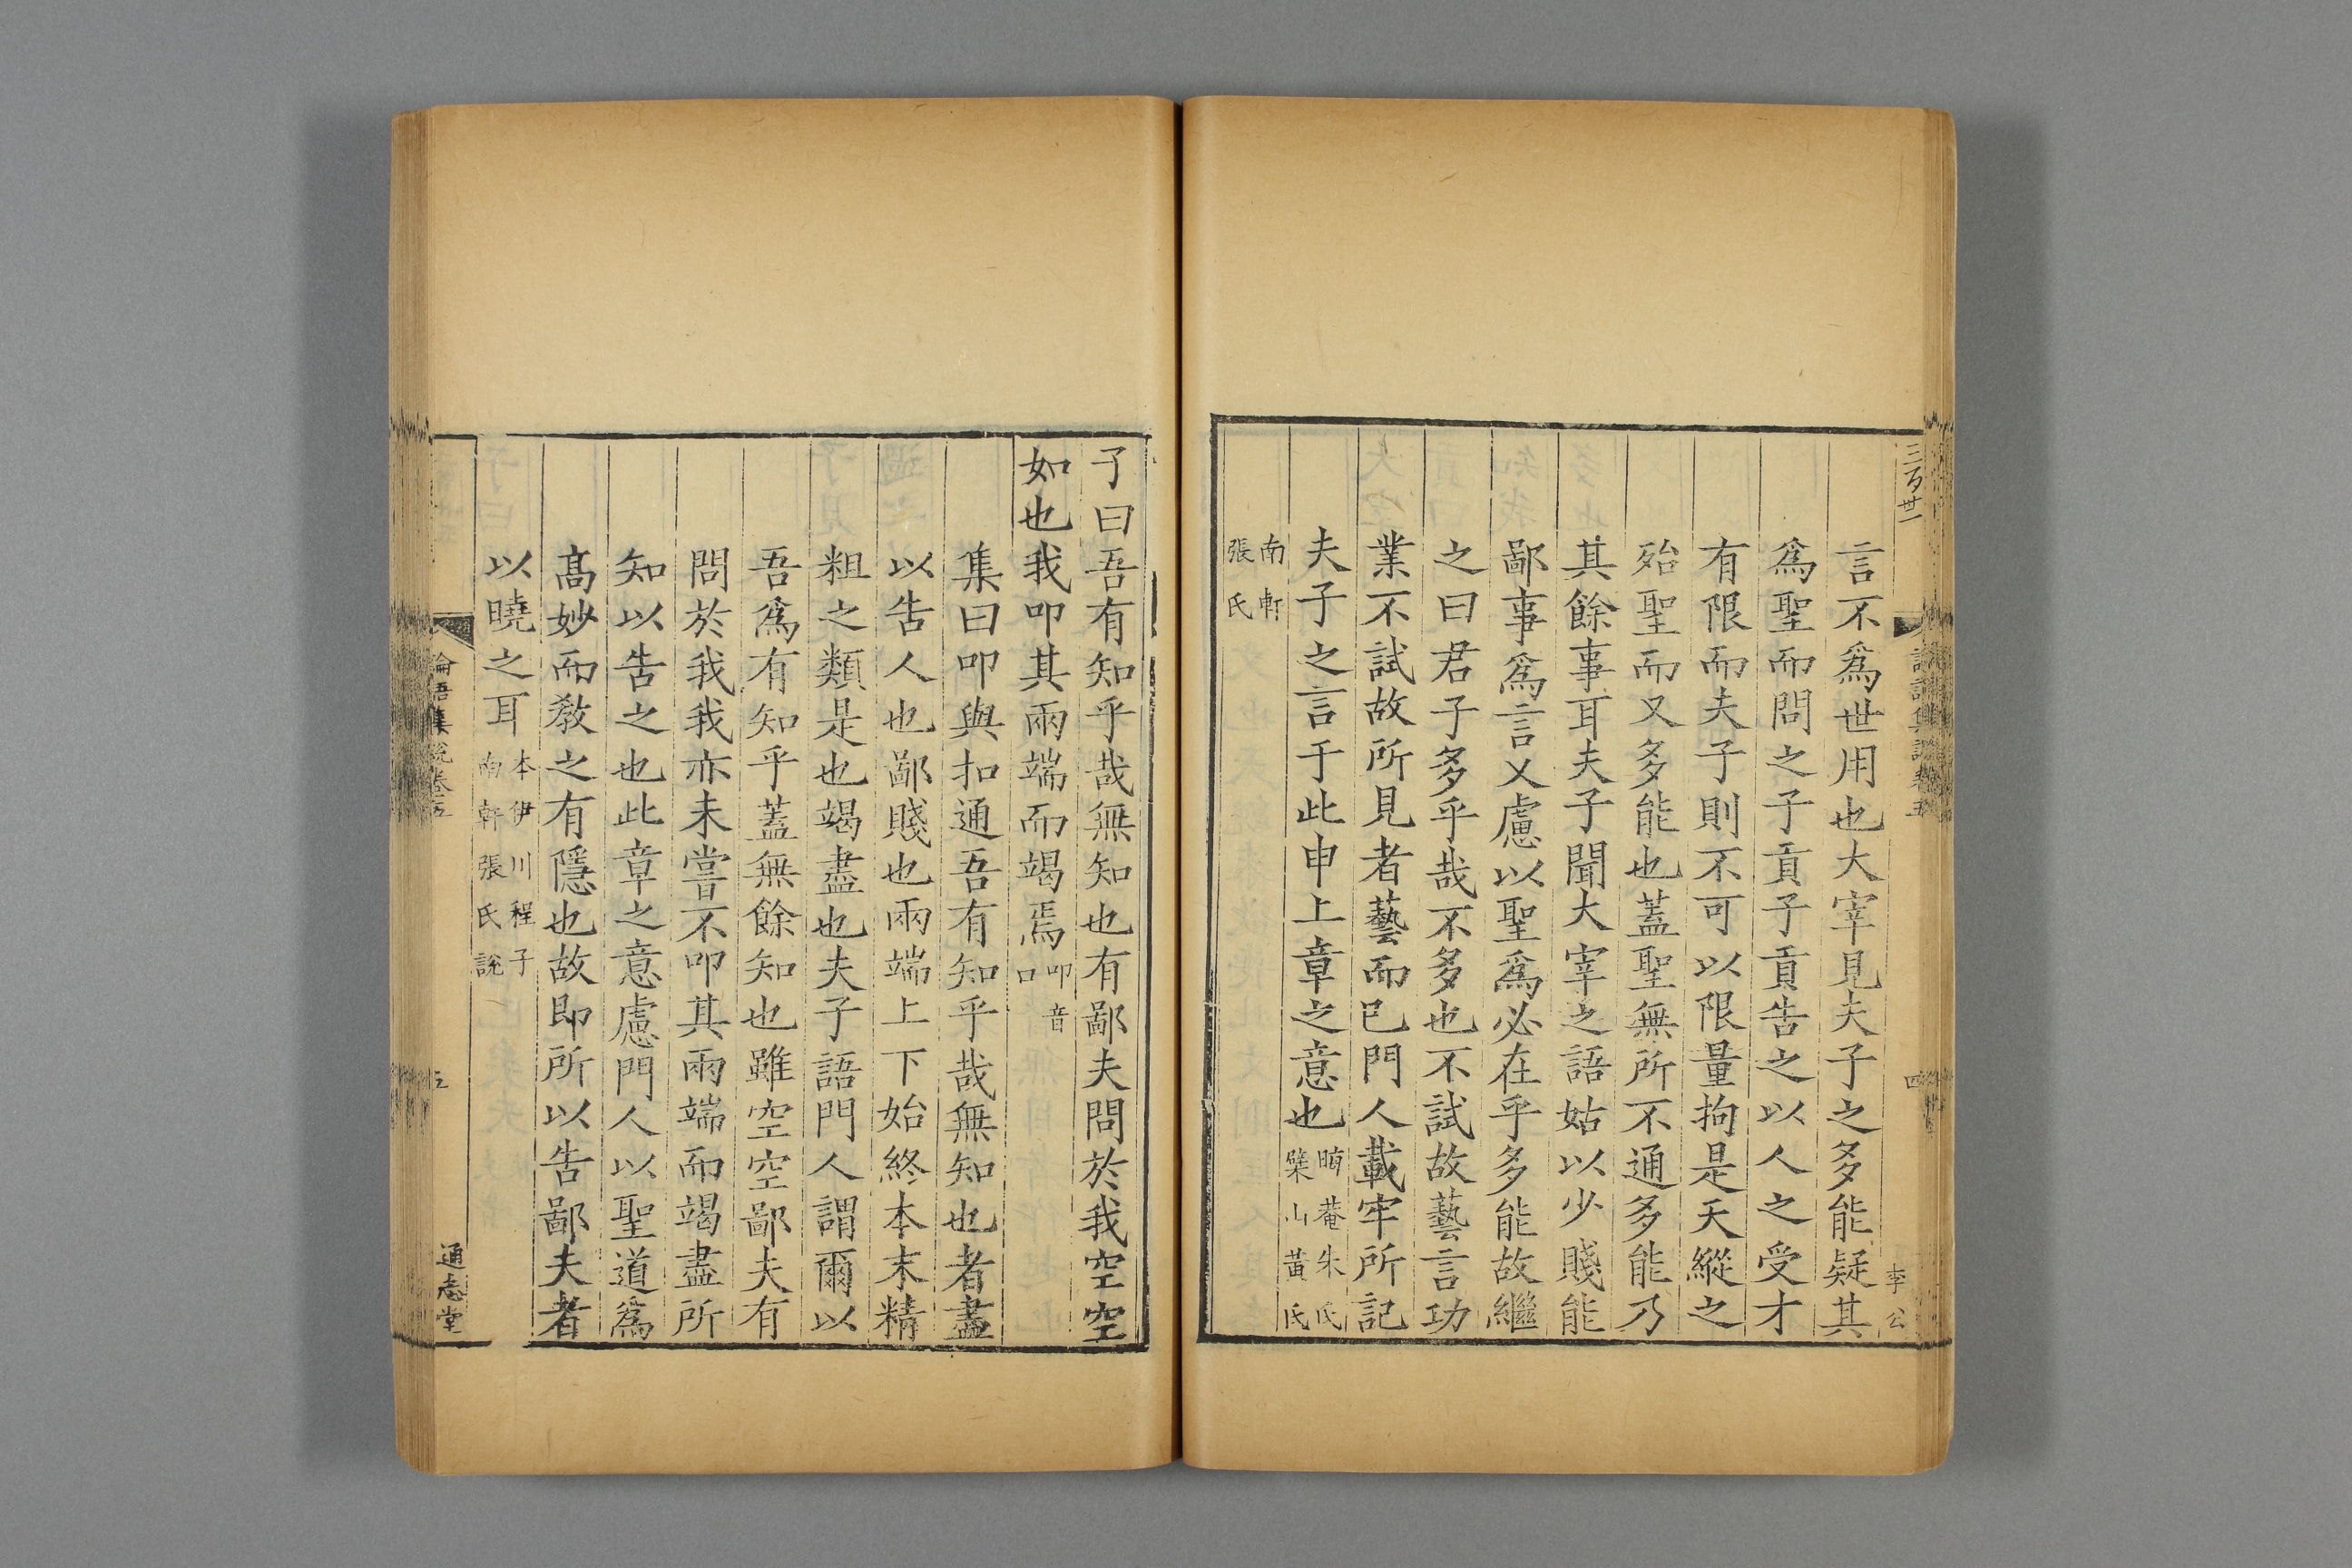 三百廿一
論語集說卷五
四
李公
言不爲世用也大宰見夫子之多能疑其
爲聖而問之子貢子貢告之以人之受才
有限而夫子則不可以限量拘是天縱之
殆聖而又多能也蓋聖無所不通多能乃
其餘事耳夫子聞大宰之語姑以少賤能
鄙事爲言又慮以聖爲必在乎多能故繼
之曰君子多乎哉不多也不試故藝言功
業不試故所見者藝而已門人載牢所記
夫子之言于此申上章之意也
晦菴朱氏
檗山黃氏
南軒
張氏
子曰吾有知乎哉無知也有鄙夫問於我空空
如也我叩其兩端而竭焉
叩音
口
集曰叩與扣通吾有知乎哉無知也者盡
以告人也鄙賤也兩端上下始終本末精
粗之類是也竭盡也夫子語門人謂爾以
吾爲有知乎蓋無餘知也雖空空鄙夫有
問於我我亦未嘗不叩其兩端而竭盡所
知以告之也此章之意慮門人以聖道爲
高妙而教之有隱也故即所以告鄙夫者
以曉之耳
本伊川程子
南軒張氏說
論語集說卷五
五
通志堂